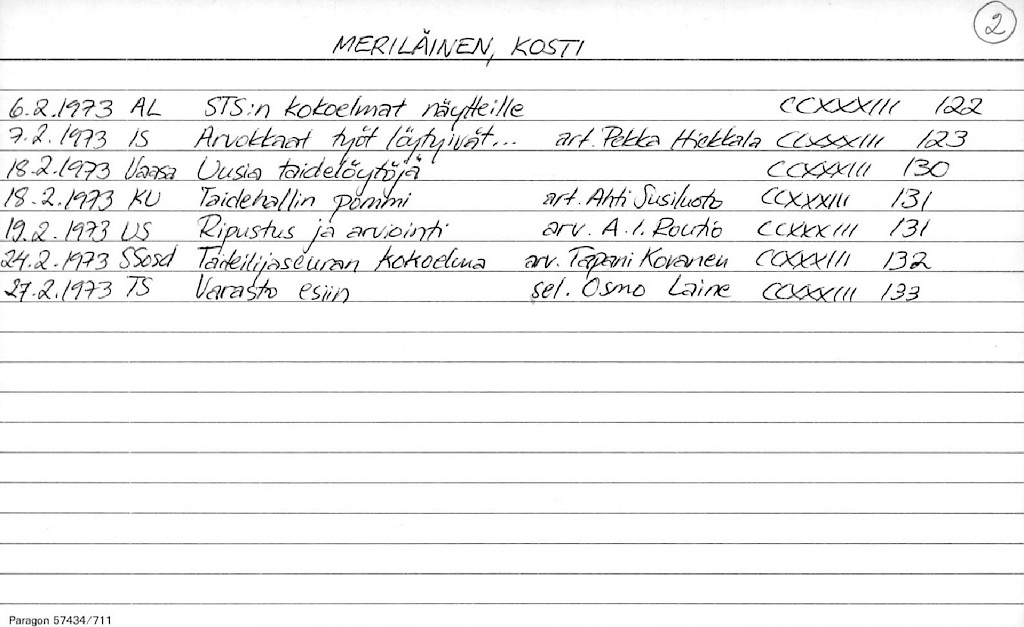 2
MERILÄINEN, KOSTI
6.2.1973 AL STS:n kokoelmat näytteille CCXXXIII 122
7.2.1973 IS Arvokkaat työt löytyivät... art. Pekka Hiekkala CCXXXIII 123
18.2.1973 Vaasa Uusia taidelöytöjä CCXXXIII 130
18.2.1973 KU Taidehallin pommi art. Ahti Susiluoto CCXXXIII 131
19.2.1973 US Ripustus ja arviointi arv. A.I. Routio CCXXXIII 131
24.2.1973 SSosd Taiteilijaseuran kokoelma arv. Tapani Kovanen CCXXXIII 132
27.2.1973 TS Varasto esiin sel. Osmo Laine CCXXXIII 133
Paragon 57434/711